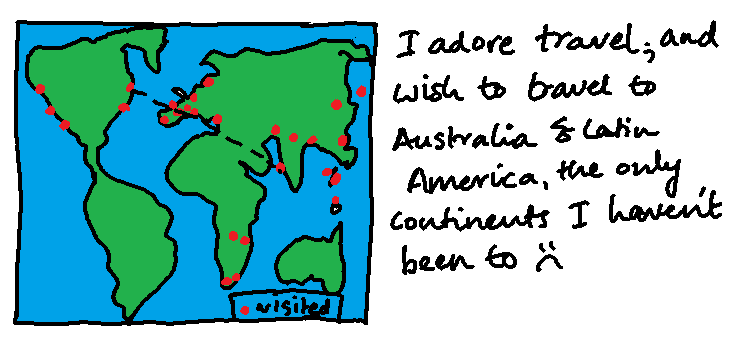 I adore travel, and
wish to travel to
Australia & Latin
America, the only
continents I haven't
been to
visited